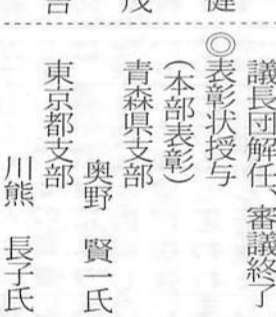 議長団解任　審議終了
◎表彰状授与
（本部表彰）
青森県支部
奥野　賢一氏
東京都支部
川熊　長子氏